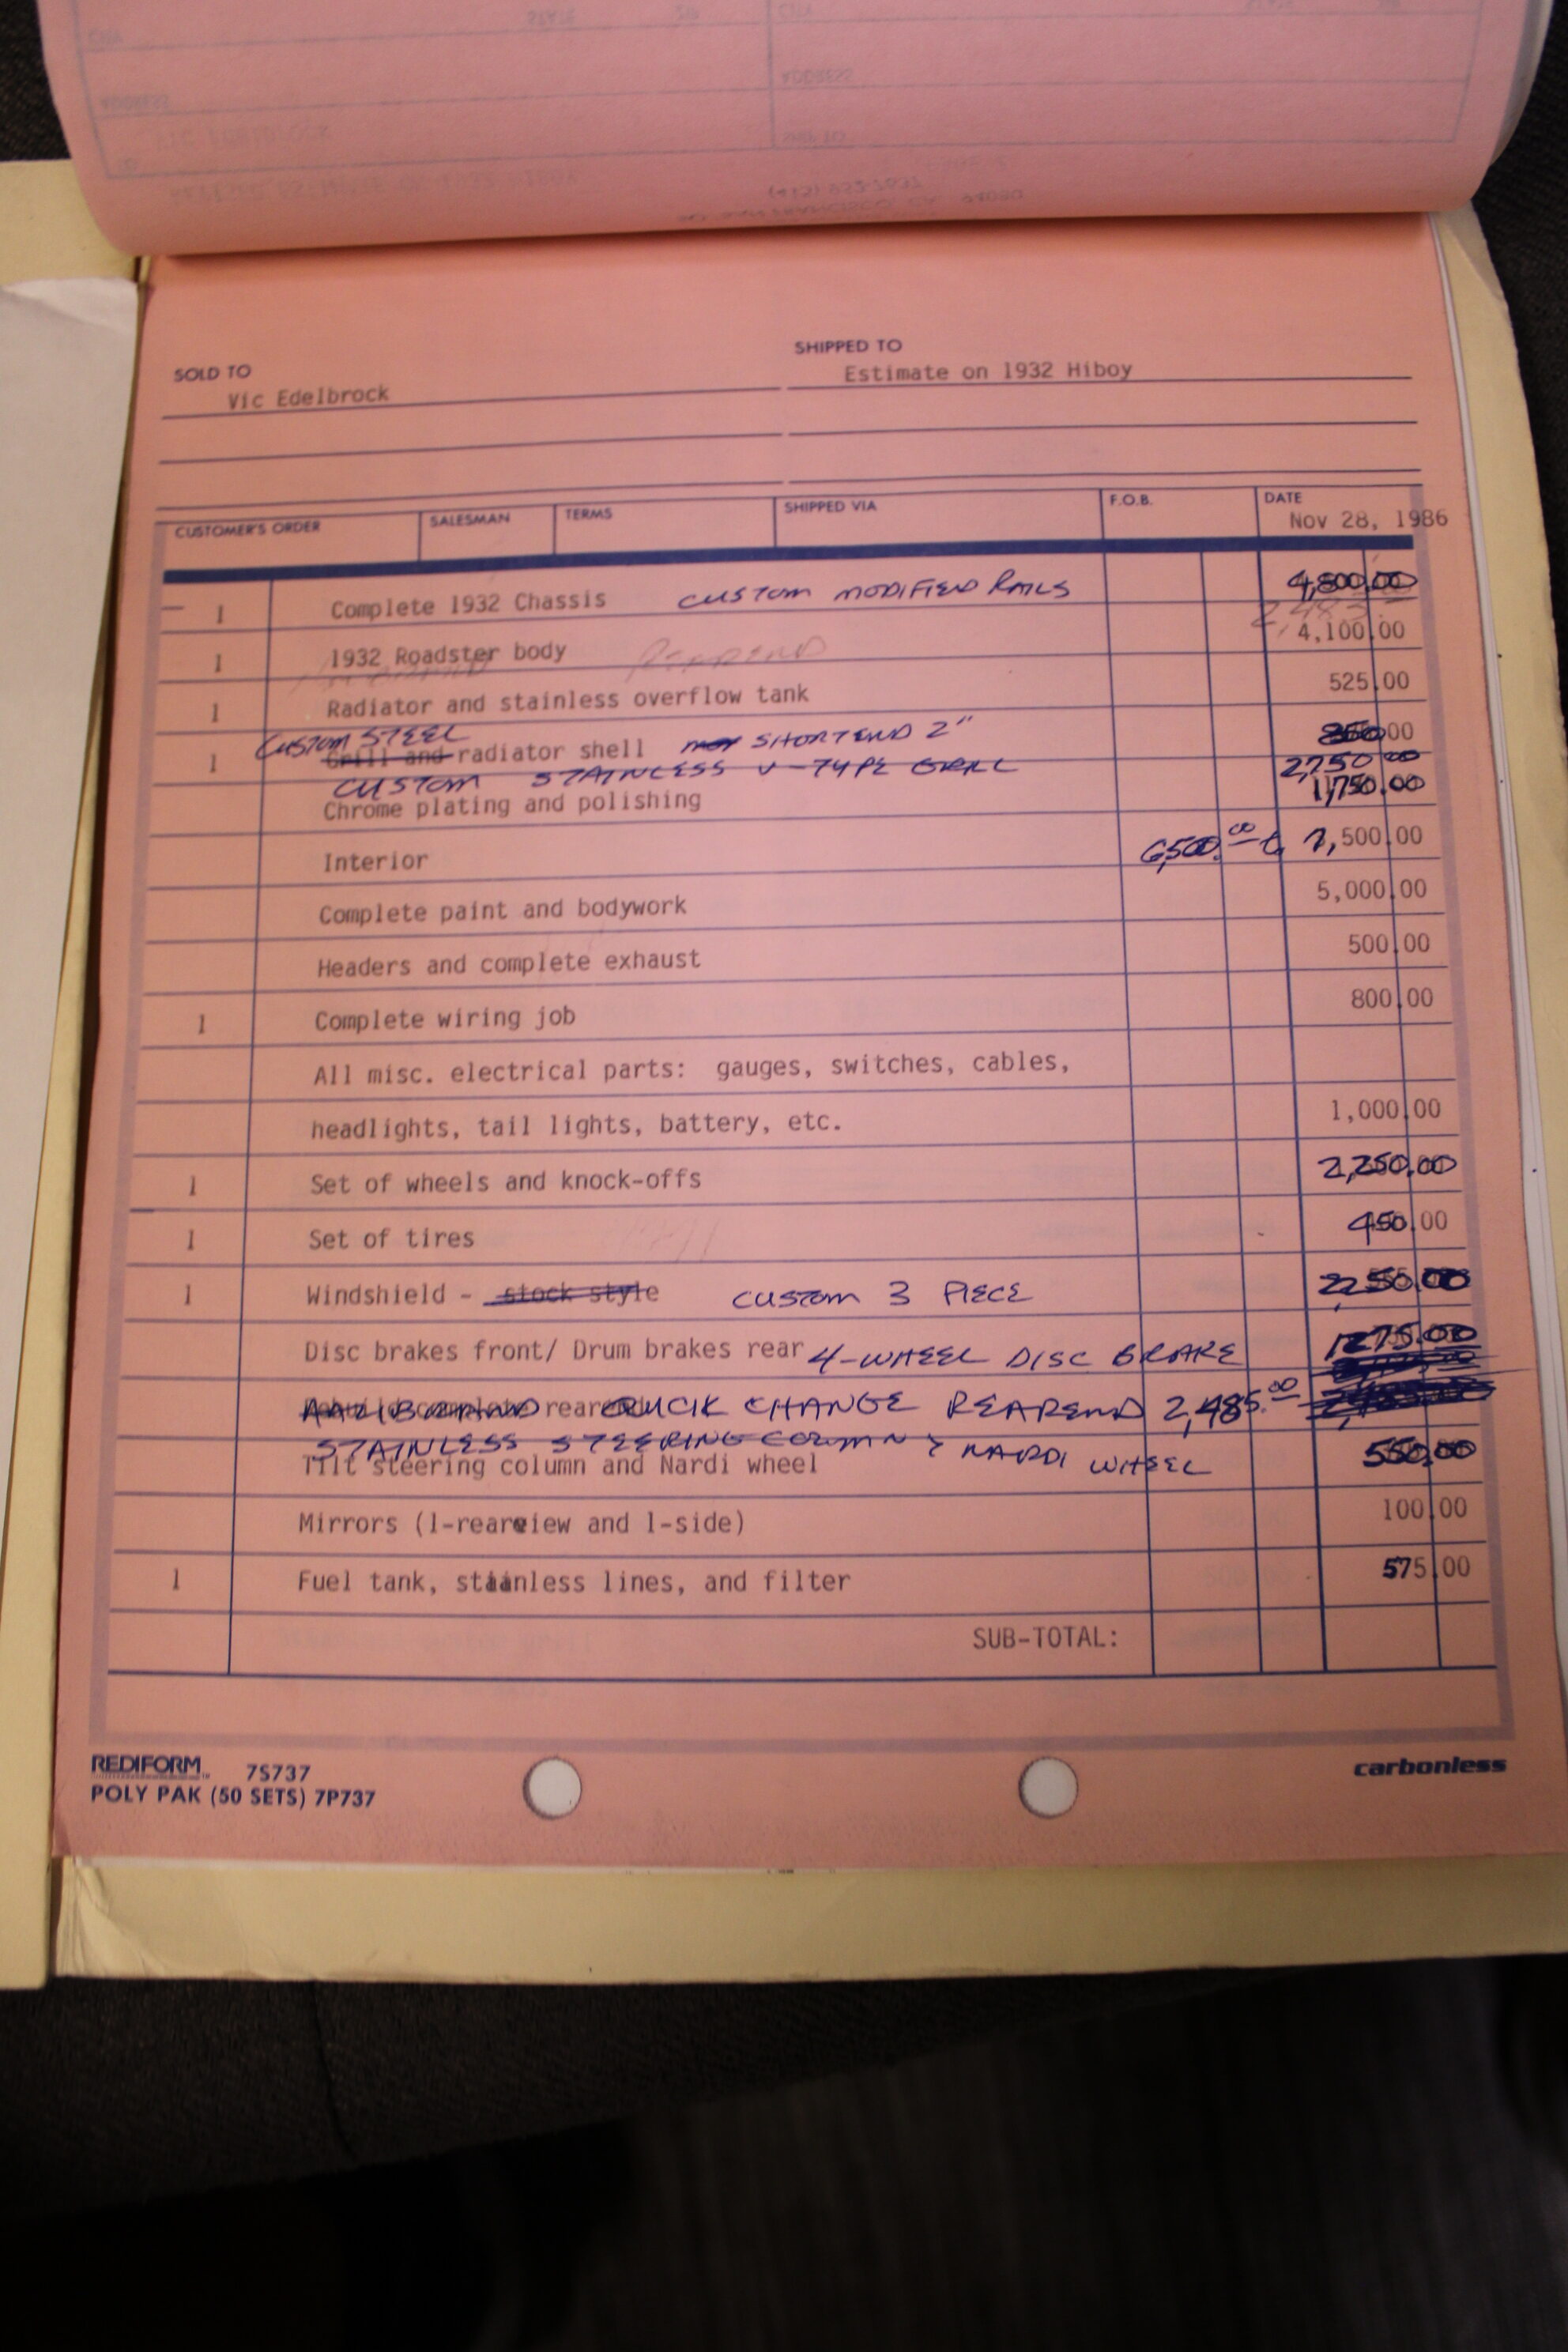 SOLD TO
Vic Edelbrock
SHIPPED TO
Estimate on 1932 Hiboy
CUSTOMER'S ORDER SALESMAN TERMS SHIPPED VIA F.O.B. DATE
Nov 28, 1986
1 Complete 1932 Chassis CUSTOM MODIFIED RAILS 4,800.00
2,485
1 1932 Roadster body 4,100.00
REAREND
1 Radiator and stainless overflow tank 525.00
CUSTOM STEEL
1 Grill and radiator shell SHORTEND 2" 350.00
CUSTOM STAINLESS V-TYPE GRILL 2,750 00
Chrome plating and polishing 1,750.00
Interior 6,500.00 to 7,500.00
Complete paint and bodywork 5,000.00
Headers and complete exhaust 500.00
1 Complete wiring job 800.00
All misc. electrical parts: gauges, switches, cables,
headlights, tail lights, battery, etc. 1,000.00
1 Set of wheels and knock-offs 2,250.00
1 Set of tires 450.00
1 Windshield - stock style CUSTOM 3 PIECE 2,250.00
Disc brakes front/ Drum brakes rear 4-WHEEL DISC BRAKE 1275.00
QUICK CHANGE REAREND 2,485.00
STAINLESS STEERING COLUMN & NARDI WHEEL
Tilt steering column and Nardi wheel 550.00
Mirrors (1-rearview and 1-side) 100.00
1 Fuel tank, stainless lines, and filter 575.00
SUB-TOTAL:
REDIFORM 7S737
POLY PAK (50 SETS) 7P737
carbonless